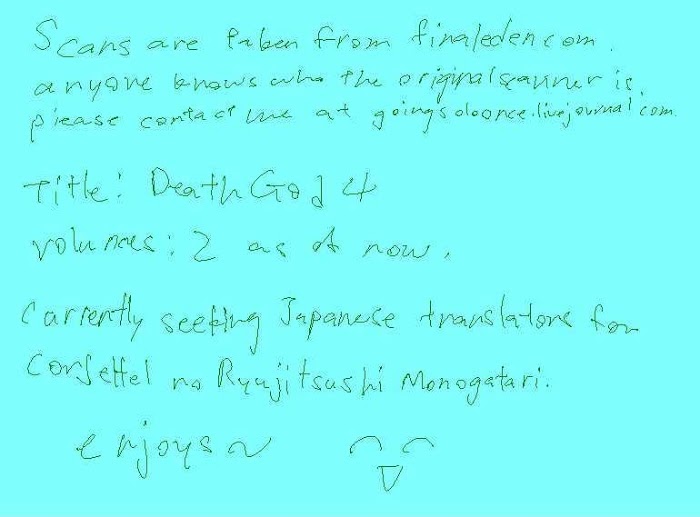 Scans are taken from finaleden.com.
anyone knows who the original scanner is,
please contact me at goingsoloonce.livejournal.com.
Title: Death God 4
volumes: 2 as of now.
Currently seeking Japanese translators for
Corseltel no Ryujitsushi Monogatari.
enjoys~